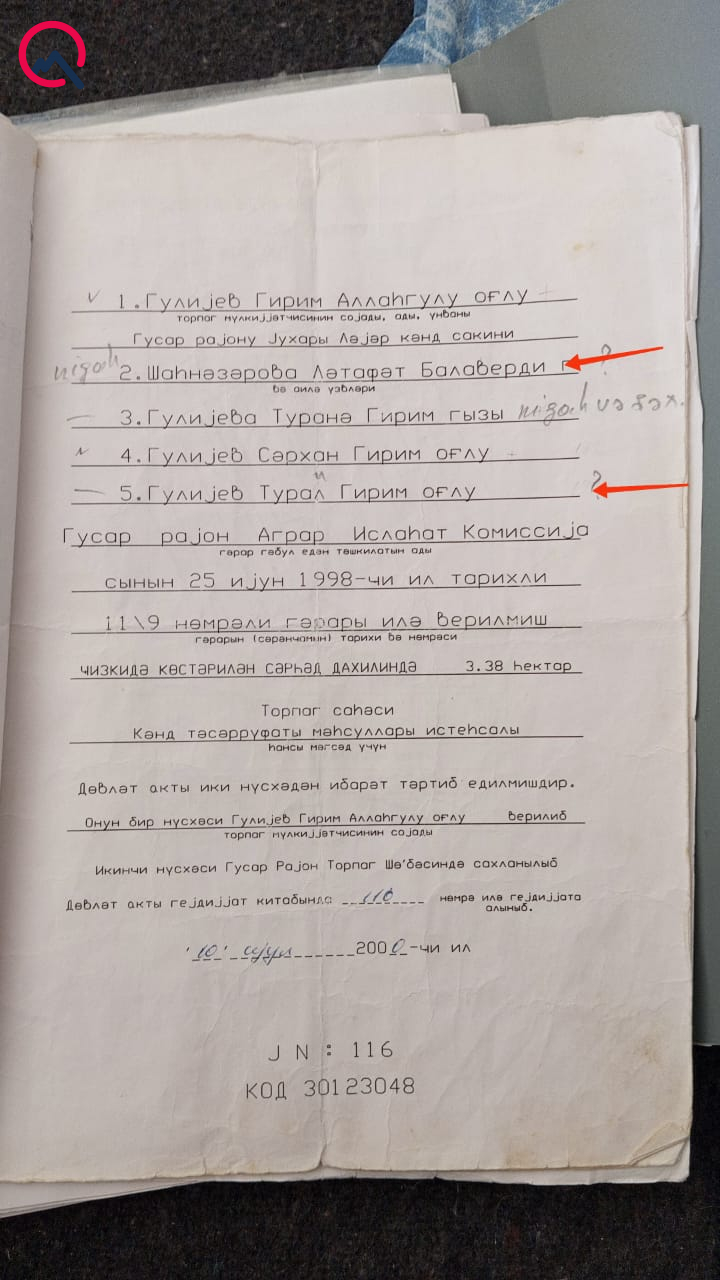 1. Гулијев Гирим Аллаһгулу оғлу
торпаг мүлкијјәтчисинин сојады, ады, үнваны
Гусар рајону Јухары Ләјәр кәнд сакини
nigah 2. Шаһнәзәрова Ләтафәт Балаверди г ?
вә аилә үзвләри
3. Гулијева Туранә Гирим гызы nigah və şəx.
4. Гулијев Сәрхан Гирим оғлу
й
5. Гулијев Турал Гирим оғлу ?
Гусар рајон Аграр Ислаһат Комиссија
гәрар гәбул едән тәшкилатын ады
сынын 25 ијун 1998-чи ил тарихли
11\9 нөмрәли гәрары илә верилмиш
гәрарын (сәрәнчамын) тарихи вә нөмрәси
чизкидә көстәрилән сәрһәд дахилиндә 3.38 һектар
Торпаг саһәси
Кәнд тәсәрруфаты мәһсуллары истеһсалы
һансы мәгсәд үчүн
Дөвләт акты ики нүсхәдән ибарәт тәртиб едилмишдир.
Онун бир нүсхәси Гулијев Гирим Аллаһгулу оғлу верилиб
торпаг мүлкијјәтчисинин сојады
Икинчи нүсхәси Гусар Рајон Торпаг Шә'бәсиндә сахланылыб
Дөвләт акты гејдијјат китабында 116 нөмрә илә гејдијјата
алыныб.
"10" ијул 2000-чи ил
J N : 116
КОД 30123048